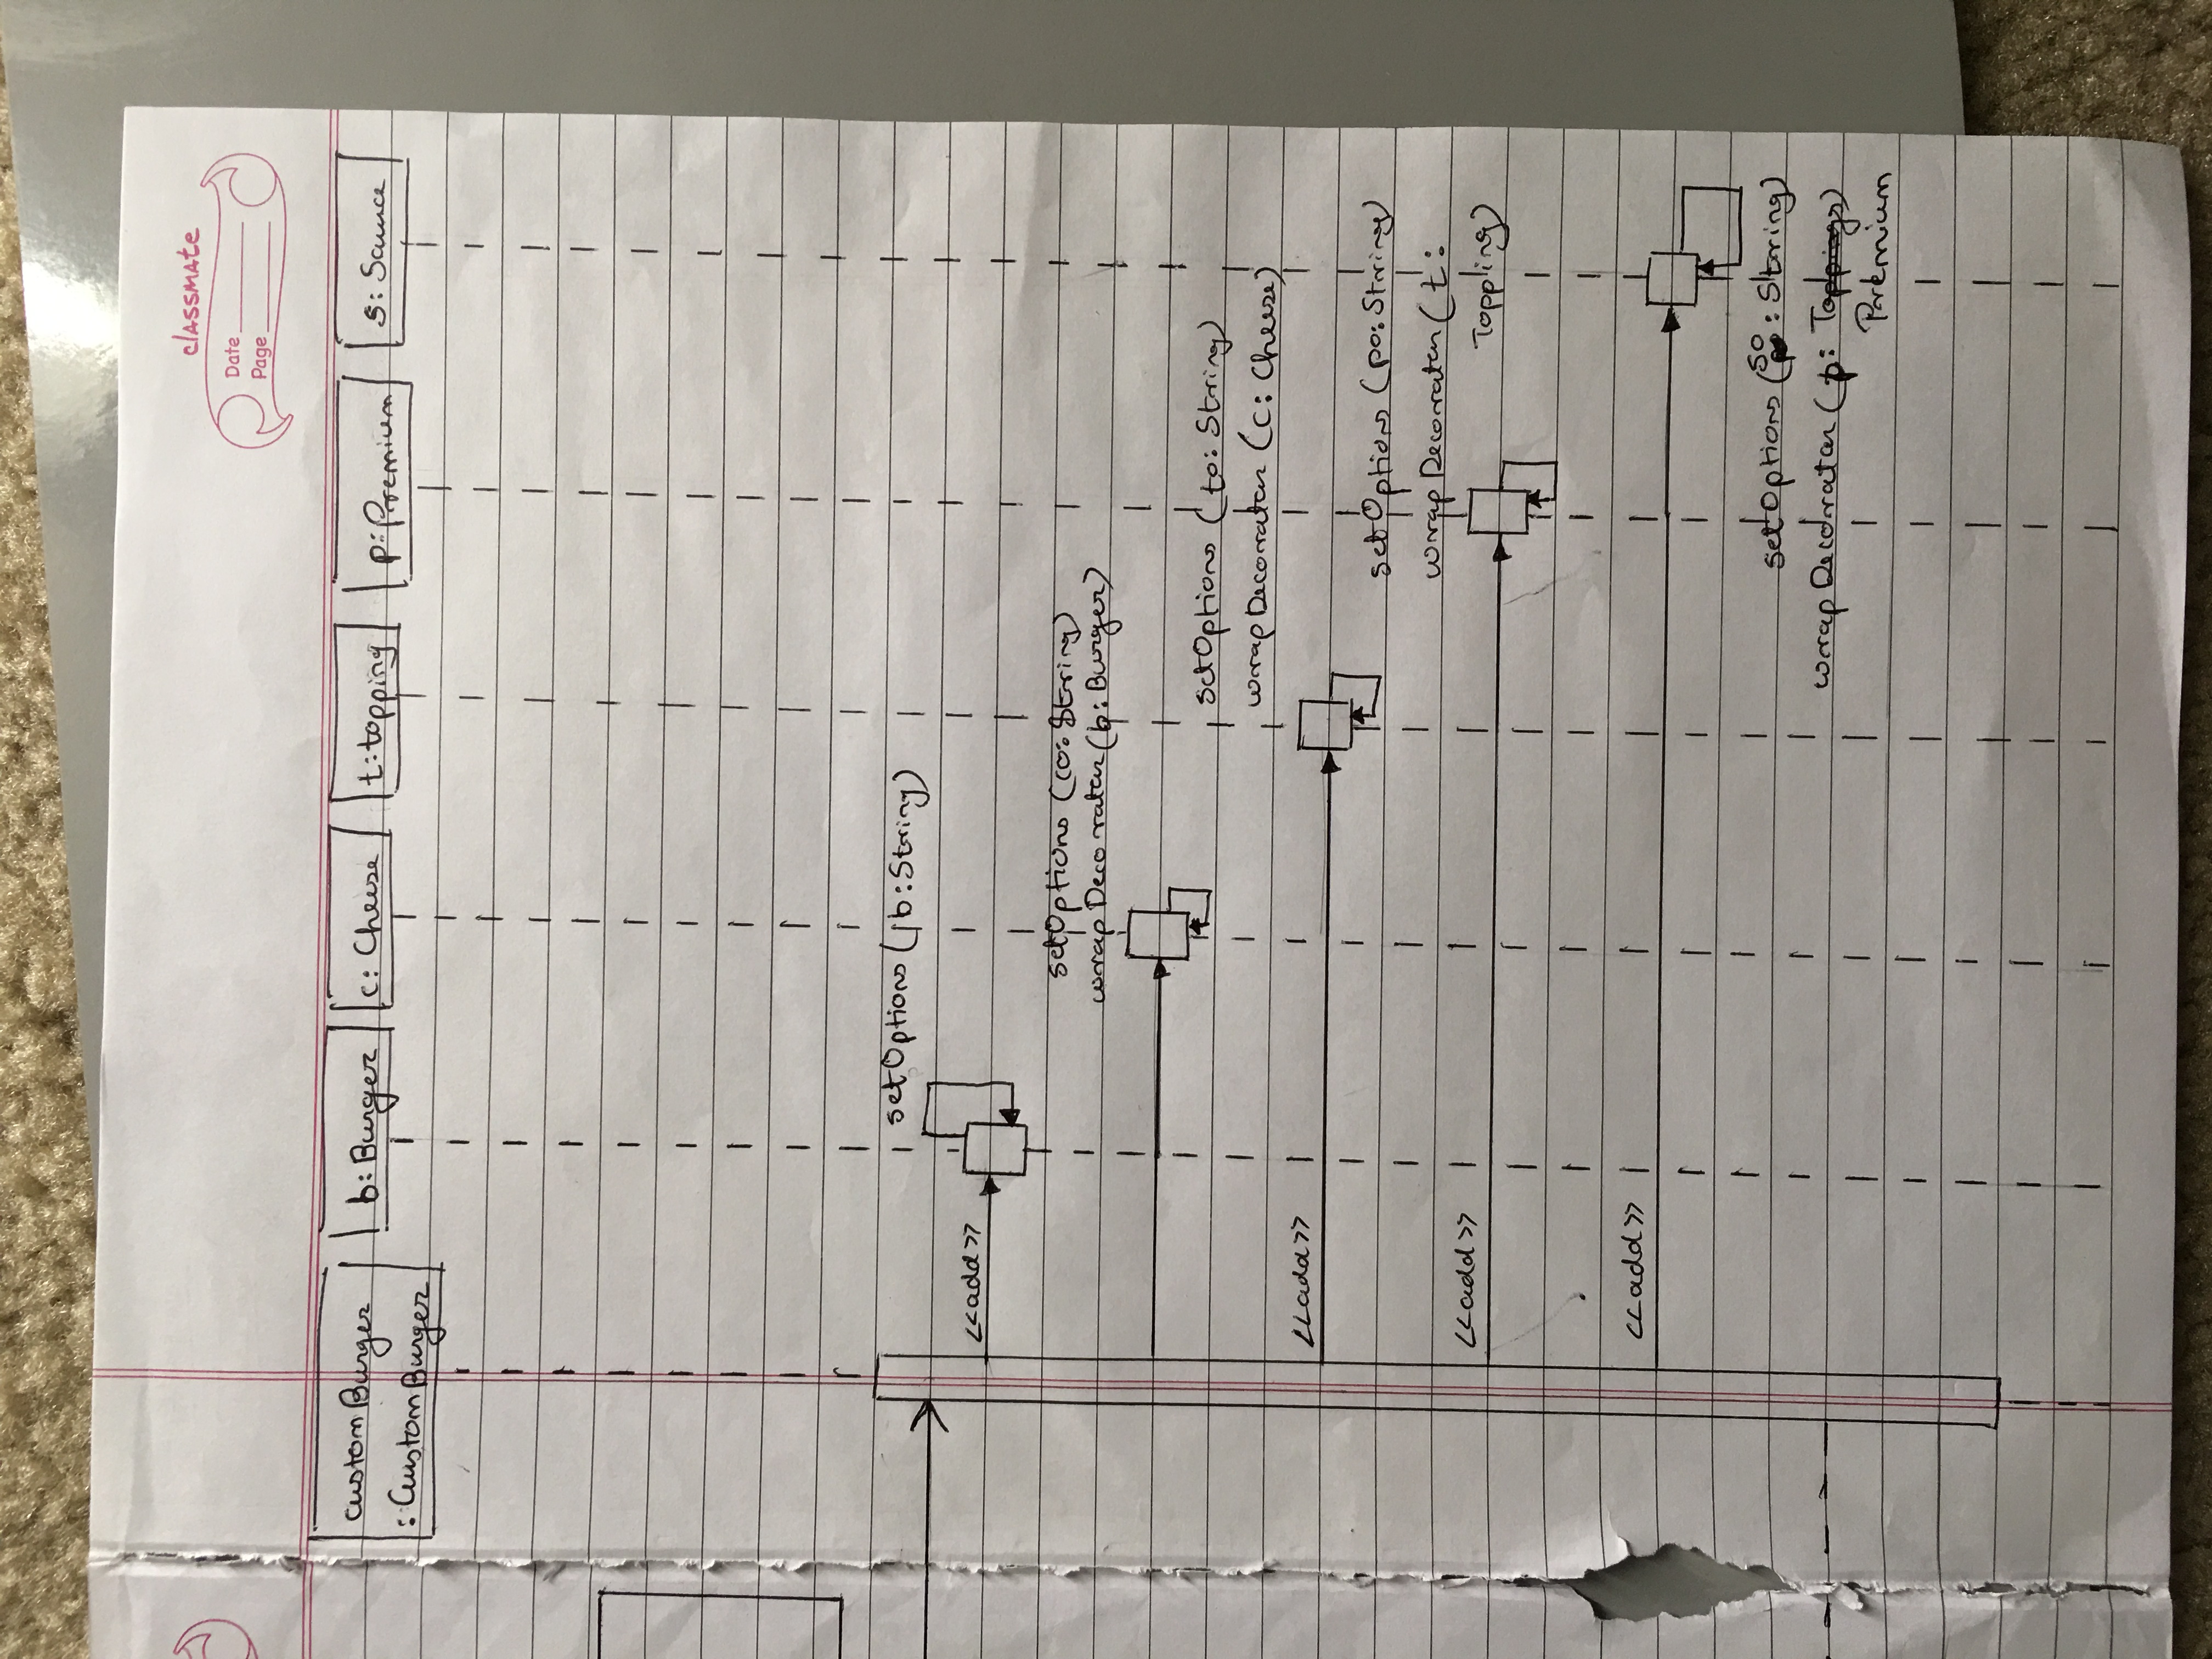 classmate
Date
Page
customBurger
: CustomBurger
b:Burger
c: Cheese
t:topping
p:Premium
s: Sauce
setOptions (b:String)
<<add>>
setOptions (co:String)
wrapDecorator (b:Burger)
setOptions ( to: String)
wrapDecorator (C: Cheese)
<<add>>
setOptions (po:String)
wrapDecorator ( t:
Toppling)
<<add>>
<<add>>
setOptions (so : String)
wrapDecorator ( p: Toppings)
Premium